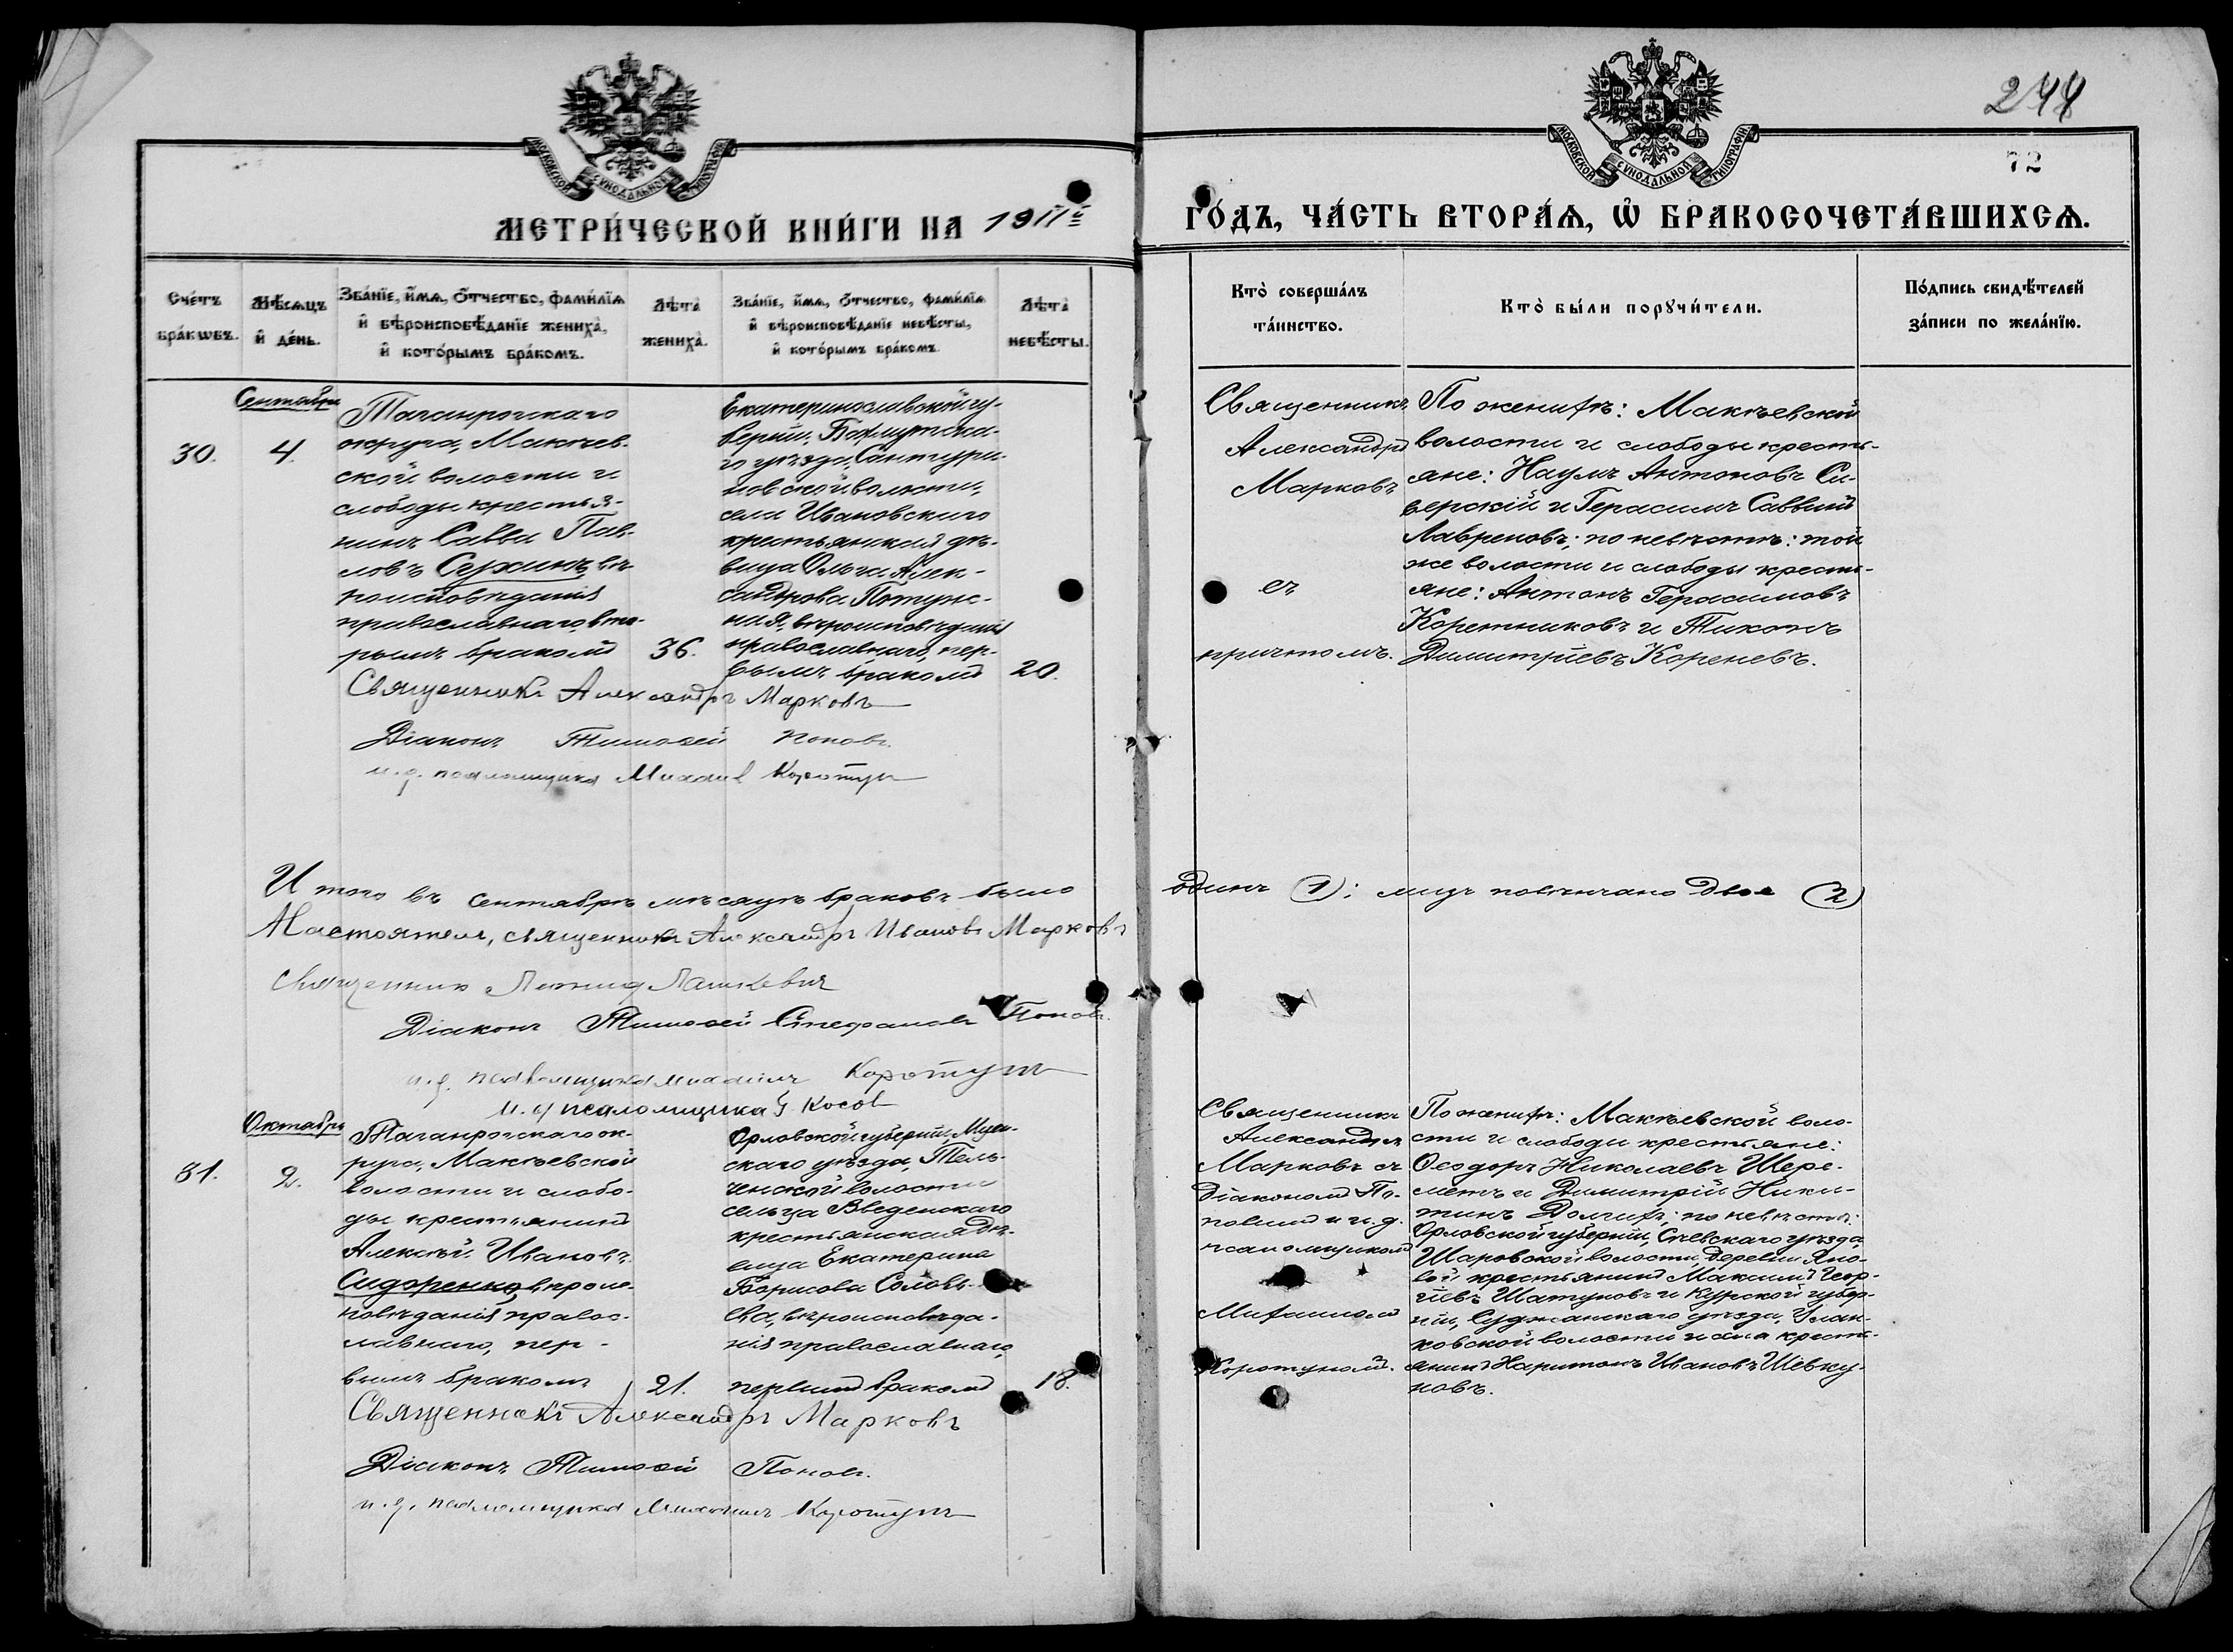 248
72
МОСКОВСКОЙ СѴНОДАЛЬНОЙ ТИПОГРАФІИ
МОСКОВСКОЙ СѴНОДАЛЬНОЙ ТИПОГРАФІИ
МЕТРИ́ЧЕСКОЙ КНИ́ГИ НА 1911й
ГО́ДЪ, ЧА́СТЬ ВТОРА́Ѧ, Ѡ҆ БРАКОСОЧЕТА́ВШИХСѦ.
Сче́тъ
бра́кѡвъ.
Мѣ́сѧцъ
и҆ де́нь.
Зва́нїе, и҆́мѧ, ѻ҆́тчество, фами́лїѧ
и҆ вѣроисповѣ́данїе жениха̀,
и҆ кото́рымъ бра́комъ.
Лѣта̀
жениха̀.
Зва́нїе, и҆́мѧ, ѻ҆́тчество, фами́лїѧ
и҆ вѣроисповѣ́данїе невѣ́сты,
и҆ кото́рымъ бра́комъ.
Лѣта̀
невѣ́сты.
Кто̀ соверша́лъ
та́инство.
Кто̀ бы́ли порꙋчи́тели.
По́дпись свидѣ́телей
за́писи по жела́нїю.
Сентябрь
30.
4.
Таганрогскаго
округа, Макѣев-
ской волости и
слободы крестья-
нинъ Савва Пав-
ловъ Сужинъ, вѣ-
роисповѣданія
православнаго, вто-
рымъ бракомъ
36.
Екатеринославской гу-
берніи, Бахмутска-
го уѣзда, Сантури-
новской волости,
села Ивановскаго
крестьянская дѣ-
вица Ольга Алек-
сандрова
вѣроисповѣданія
православнаго, пер-
вымъ бракомъ
20.
Священникъ
Александръ
Марковъ
съ
причтомъ.
По женихѣ: Макѣевской
волости и слободы кресть-
яне: Наумъ Антоновъ Си-
верскій и Герасимъ Саввинъ
Лавреновъ; по невѣстѣ: той
же волости и слободы кресть-
яне: Антонъ Герасимовъ
Коретниковъ и Тихонъ
Димитріевъ Кореневъ.
Священникъ Александръ Марковъ
Діаконъ Тимоѳей Поповъ.
и. д. псаломщика Михаилъ Коротунъ
Итого въ сентябрѣ мѣсяцѣ браковъ было
одинъ (1); лицъ повѣнчано двое (2)
Настоятель, священникъ Александръ Ивановъ Марковъ
Священникъ Леонид Лашкевич
Діаконъ Тимоѳей Стефановъ Поповъ.
и. д. псаломщика Михаилъ Коротунъ
и. д псаломщика Косов
Октябрь
31.
2.
Таганрогскаго ок-
руга, Макѣевской
волости и слобо-
ды крестьянинъ
Алексѣй Ивановъ
Сидоренко, вѣроис-
повѣданія правос-
лавнаго, пер-
вымъ бракомъ
21.
Орловской губерніи, Мцен-
скаго уѣзда, Тель-
ченской волости
сельца Введенскаго
крестьянская дѣ-
вица Екатерина
Борисова Соловь-
ева, вѣроисповѣда-
нія православнаго,
первымъ бракомъ
18.
Священникъ
Александръ
Марковъ съ
діакономъ По-
повымъ и и. д.
псаломщикомъ
Михаиломъ
Коротуномъ.
По женихѣ: Макѣевской воло-
сти и слободы крестьяне:
Ѳеодоръ Николаевъ Шере-
метъ и Димитрій Ники-
тинъ Долгихъ; по невѣстѣ:
Орловской губерніи, Сѣвскаго уѣзда,
Шаровской волости, деревни Яно-
вой крестьянинъ Максимъ Геор-
гіевъ Шатуновъ и Курской губер-
ніи, Суджанскаго уѣзда, Улан-
ковской волости и села кресть-
янинъ Харитонъ Ивановъ Шевку-
новъ.
Священникъ Александръ Марковъ
Діаконъ Тимоѳей Поповъ.
и. д. псаломщика Михаилъ Коротунъ